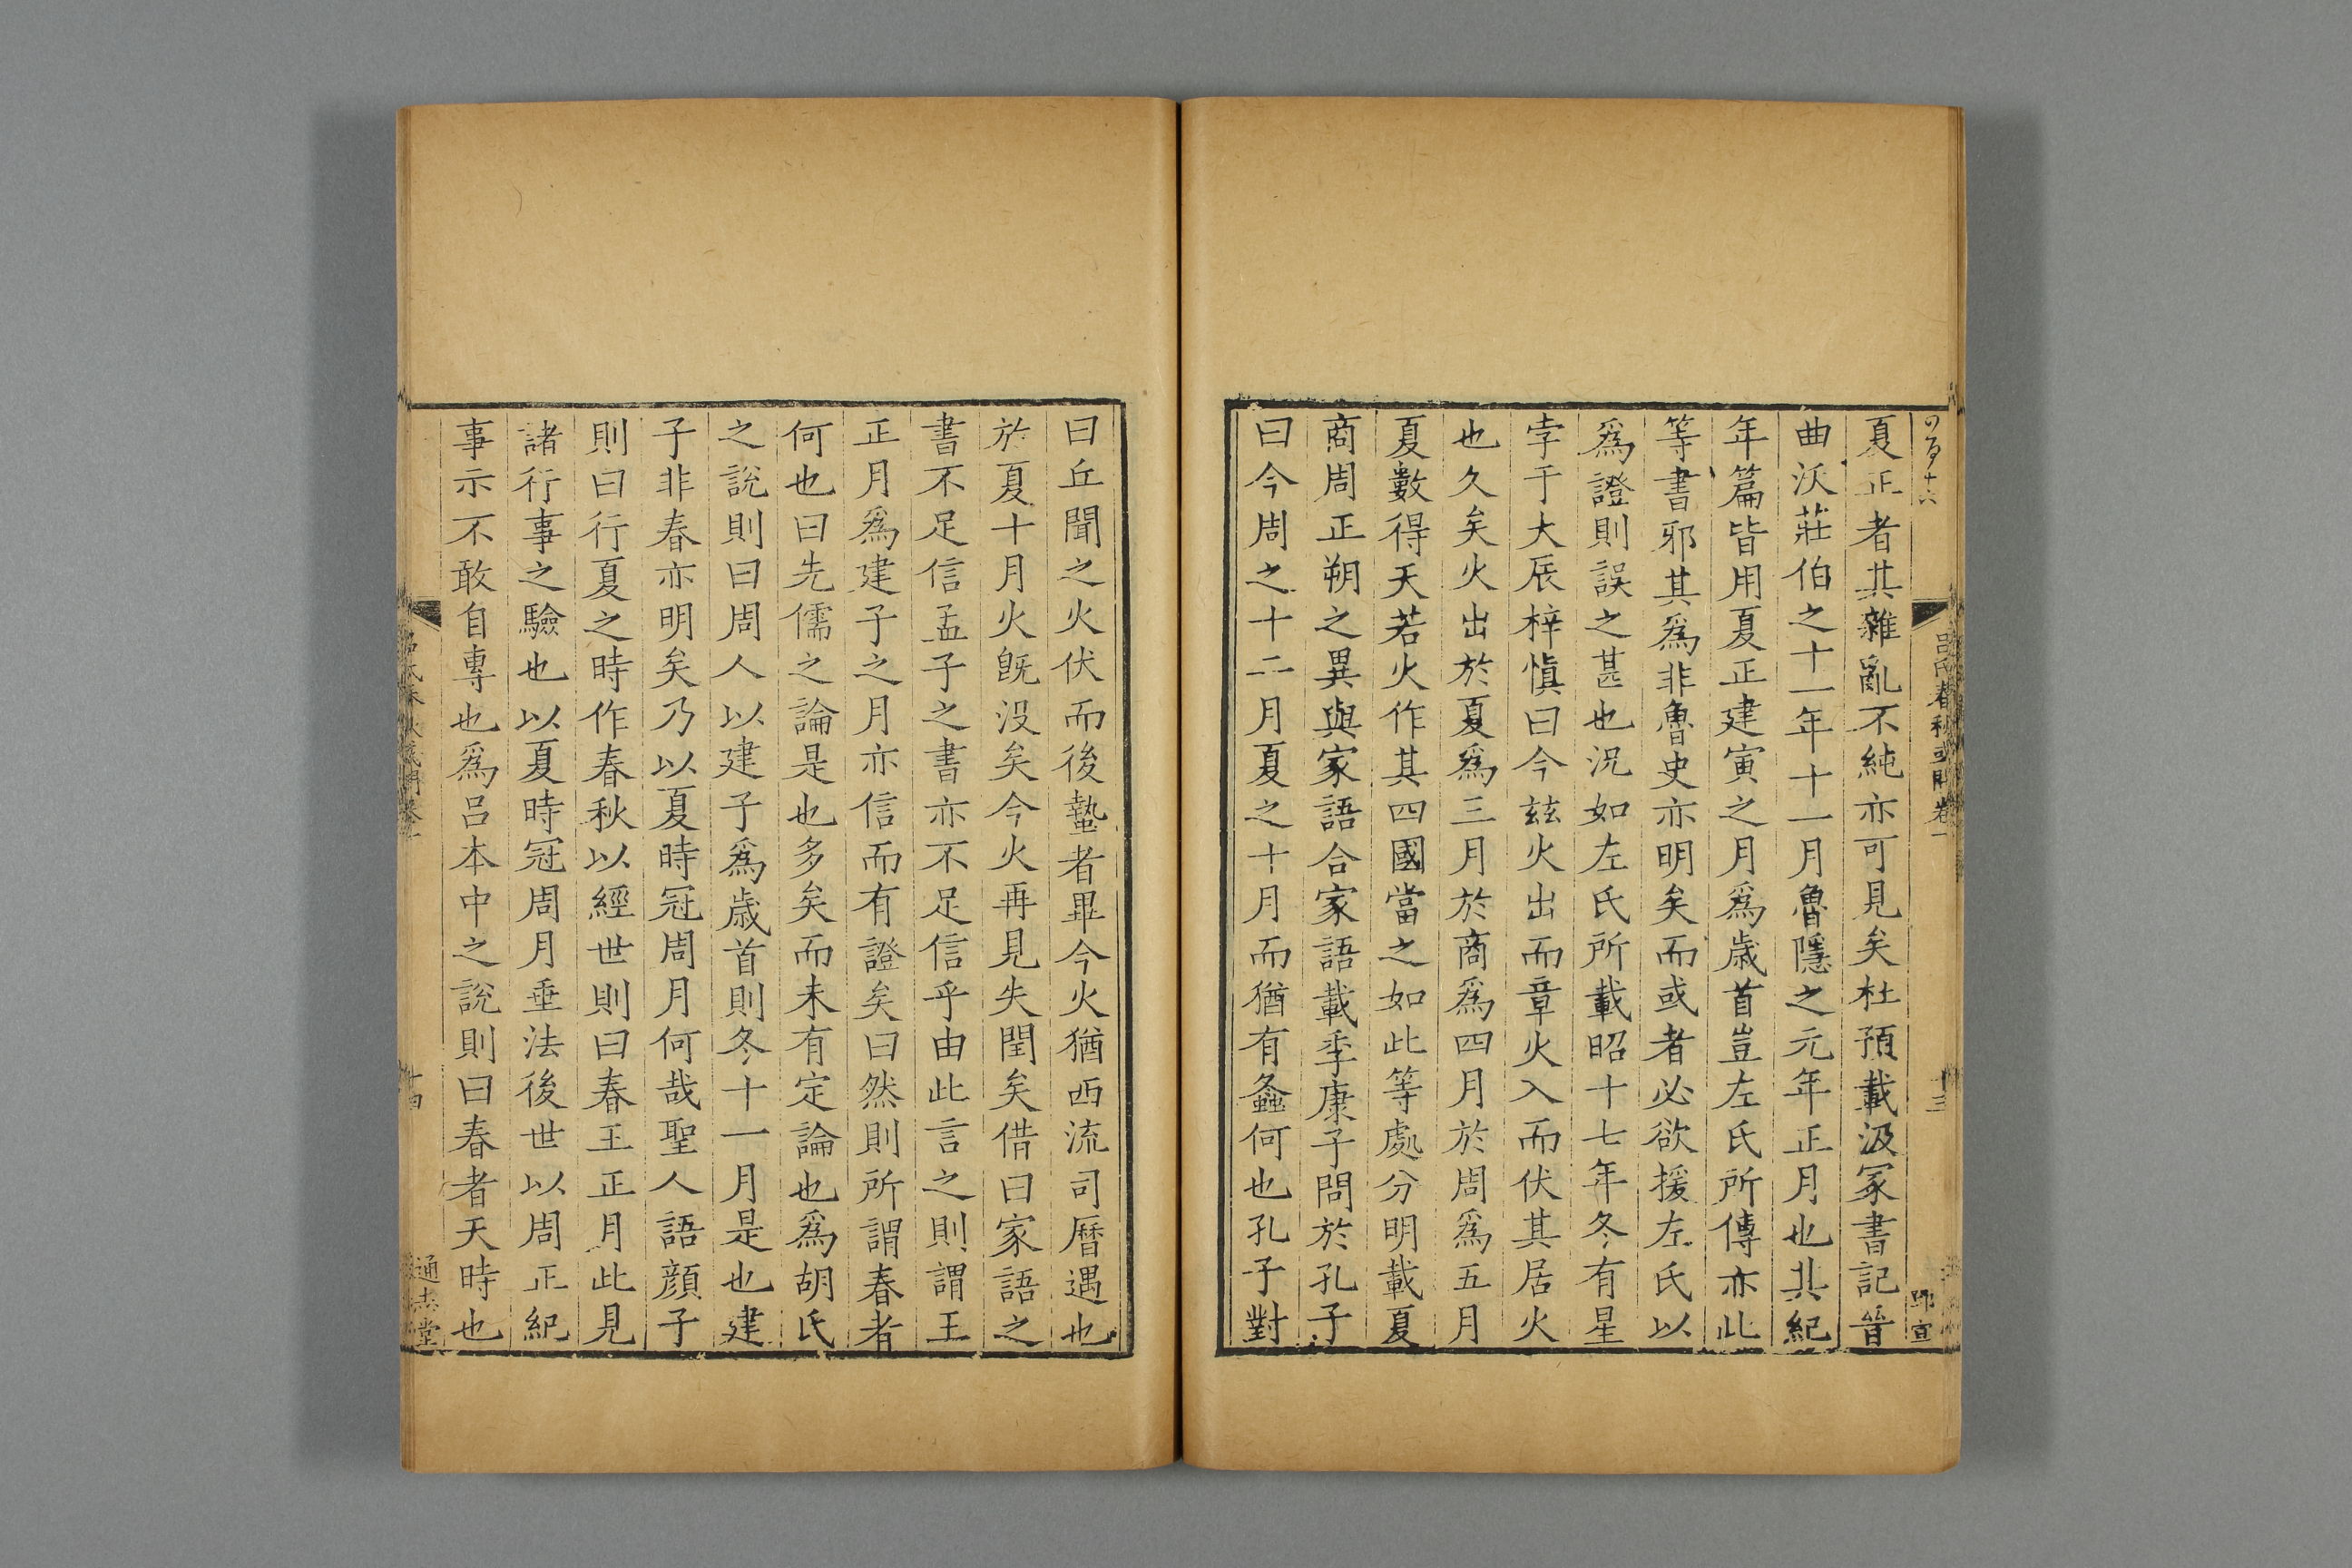 夏正者其雜亂不純亦可見矣杜預載汲冢書記晉
曲沃莊伯之十一年十一月魯隱之元年正月也其紀
年篇皆用夏正建寅之月爲歳首豈左氏所傳亦此
等書邪其爲非魯史亦明矣而或者必欲援左氏以
爲證則誤之甚也況如左氏所載昭十七年冬有星
孛于大辰梓愼曰今玆火出而章火入而伏其居火
也久矣火出於夏爲三月於商爲四月於周爲五月
夏數得天若火作其四國當之如此等處分明載夏
商周正朔之異與家語合家語載季康子問於孔子
曰今周之十二月夏之十月而猶有螽何也孔子對
曰丘聞之火伏而後蟄者畢今火猶西流司曆過也
於夏十月火旣没矣今火再見失閏矣借曰家語之
書不足信孟子之書亦不足信乎由此言之則謂王
正月爲建子之月亦信而有證矣曰然則所謂春者
何也曰先儒之論是也多矣而未有定論也爲胡氏
之說則曰周人以建子爲歳首則冬十一月是也建
子非春亦明矣乃以夏時冠周月何哉聖人語顔子
則曰行夏之時作春秋以經世則曰春王正月此見
諸行事之驗也以夏時冠周月垂法後世以周正紀
事示不敢自專也爲呂本中之說則曰春者天時也
呂氏春秋或問卷一
十三
十四
通志堂